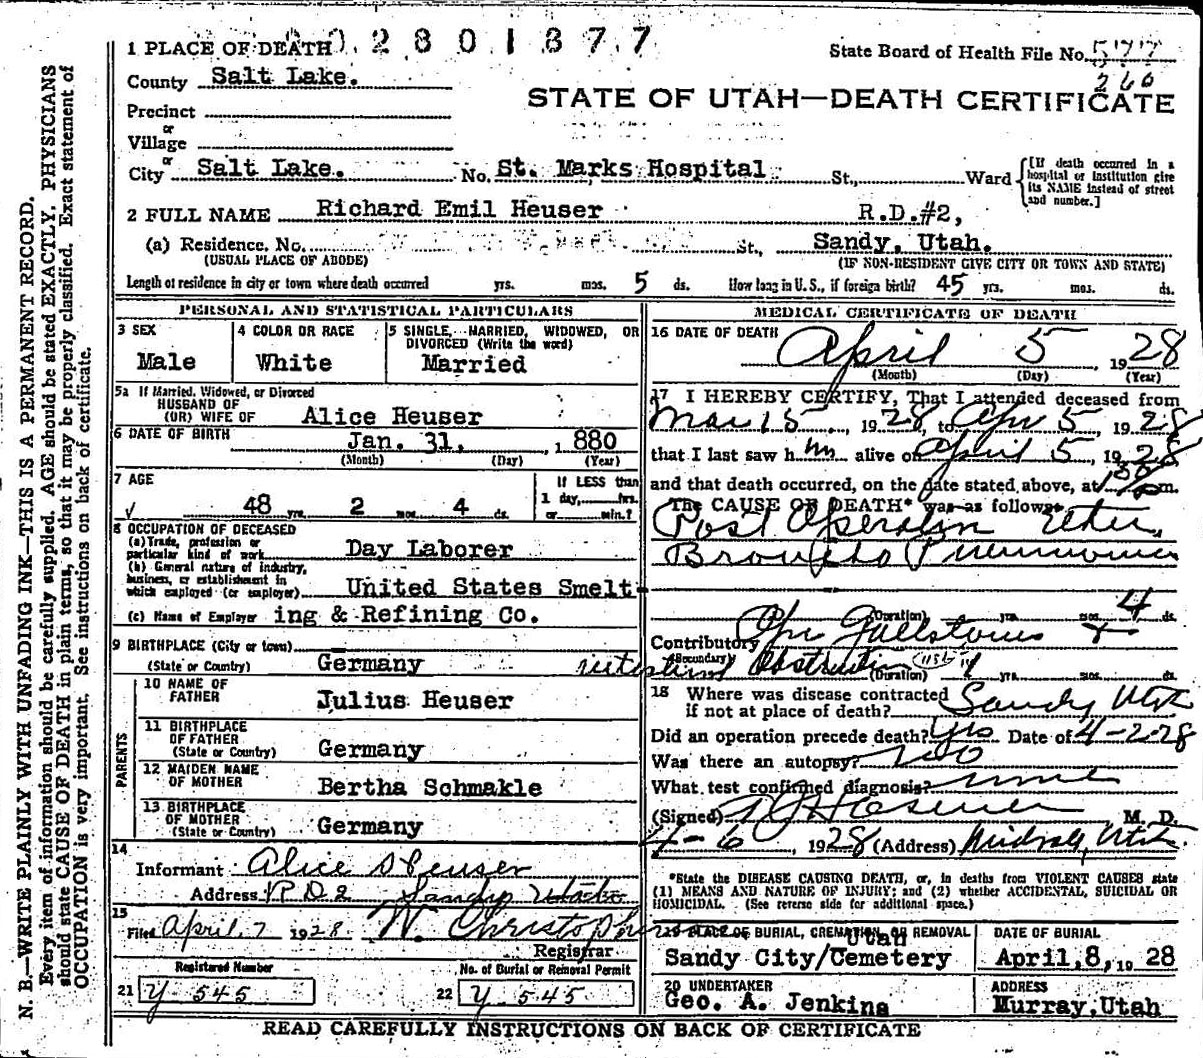 N. B.—WRITE PLAINLY WITH UNFADING INK—THIS IS A PERMANENT RECORD.
Every item of information should be carefully supplied. AGE should be stated EXACTLY. PHYSICIANS
should state CAUSE OF DEATH in plain terms, so that it may be properly classified. Exact statement of
OCCUPATION is very important. See instructions on back of certificate.
1 PLACE OF DEATH
02801877
State Board of Health File No. 577
260
County Salt Lake.
STATE OF UTAH—DEATH CERTIFICATE
Precinct
or
Village
or
City Salt Lake. No. St. Marks Hospital St., Ward
[If death occurred in a
hospital or institution give
its NAME instead of street
and number.]
2 FULL NAME Richard Emil Heuser R.D.#2,
(a) Residence, No. St., Sandy, Utah.
(USUAL PLACE OF ABODE) (IF NON-RESIDENT GIVE CITY OR TOWN AND STATE)
Length of residence in city or town where death occurred yrs. mos. 5 ds. How long in U.S., if foreign birth? 45 yrs. mos. ds.
PERSONAL AND STATISTICAL PARTICULARS
3 SEX
Male
4 COLOR OR RACE
White
5 SINGLE, MARRIED, WIDOWED, OR
DIVORCED (Write the word)
Married
5a If Married, Widowed, or Divorced
HUSBAND OF
(OR) WIFE OF Alice Heuser
6 DATE OF BIRTH Jan. 31, 1880
(Month) (Day) (Year)
7 AGE
48 yrs. 2 mos. 4 ds.
If LESS than
1 day, hrs.
or min.?
8 OCCUPATION OF DECEASED
(a) Trade, profession or
particular kind of work Day Laborer
(b) General nature of industry,
business, or establishment in
which employed (or employer) United States Smelt-
(c) Name of Employer ing & Refining Co.
9 BIRTHPLACE (City or town)
(State or Country) Germany
PARENTS
10 NAME OF
FATHER Julius Heuser
11 BIRTHPLACE
OF FATHER
(State or Country) Germany
12 MAIDEN NAME
OF MOTHER Bertha Schmakle
13 BIRTHPLACE
OF MOTHER
(State or Country) Germany
14
Informant Alice Heuser
Address R D 2 Sandy Utah
15
Filed April 7 1928 W. Christoph
Registrar
Registered Number
21 Y 545
No. of Burial or Removal Permit
22 Y 545
MEDICAL CERTIFICATE OF DEATH
16 DATE OF DEATH April 5 1928
(Month) (Day) (Year)
17 I HEREBY CERTIFY, That I attended deceased from
Mar 15, 1928, to Apr 5, 1928
that I last saw him alive on April 5, 1928
and that death occurred, on the date stated above, at m.
The CAUSE OF DEATH* was as follows:
Post Operation Ether
Broncho Pneumonia
(Duration) yrs. mos. 4 ds.
Contributory Opr Gallstones +
(Secondary) intestinal Obstruction
(Duration) yrs. mos. ds.
18 Where was disease contracted
if not at place of death? Sandy Utah
Did an operation precede death? Yes Date of 4-2-28
Was there an autopsy? no
What test confirmed diagnosis? none
(Signed) M. D.
4-6, 1928 (Address) Midvale, Utah
*State the DISEASE CAUSING DEATH, or, in deaths from VIOLENT CAUSES state
(1) MEANS AND NATURE OF INJURY; and (2) whether ACCIDENTAL, SUICIDAL OR
HOMICIDAL. (See reverse side for additional space.)
19 PLACE OF BURIAL, CREMATION, OR REMOVAL
Utah
Sandy City/Cemetery
DATE OF BURIAL
April,8, 19 28
20 UNDERTAKER
Geo. A. Jenkins
ADDRESS
Murray,Utah
READ CAREFULLY INSTRUCTIONS ON BACK OF CERTIFICATE